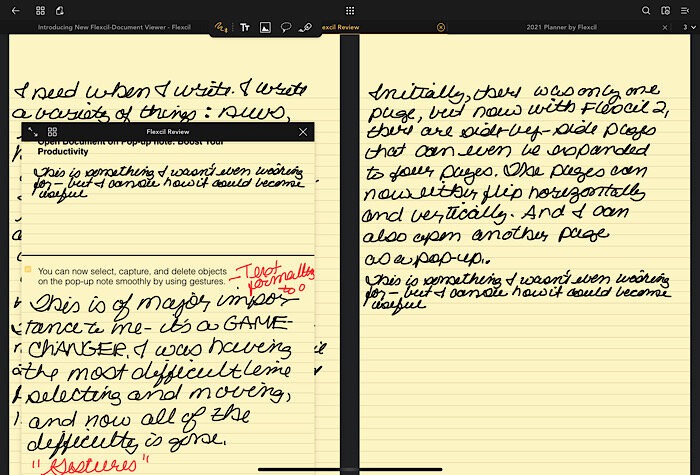 Introducing New Flexcil-Document Viewer - Flexcil
excil Review
2021 Planner by Flexcil
3
TT
I need when I write. I write
a variety of things: news,
Flexcil Review
Open Document on Pop-up note: Boost Your
Productivity
This is something I wasn't even looking
for - but I can see how it could become
useful
You can now select, capture, and delete objects
on the pop-up note smoothly by using gestures.
- Text
formally
to o
This is of major impor-
tance to me - it's a GAME-
CHANGER. I was having
the most difficult time
selecting and moving,
and now all of the
difficulty is gone.
"Gestures"
Initially, there was only one
page, but now with Flexcil 2,
there are side-by-side pages
that can even be expanded
to four pages. The pages can
now either flip horizontally
and vertically. And I can
also open another page
as a pop-up.
This is something I wasn't even looking
for - but I can see how it could become
useful